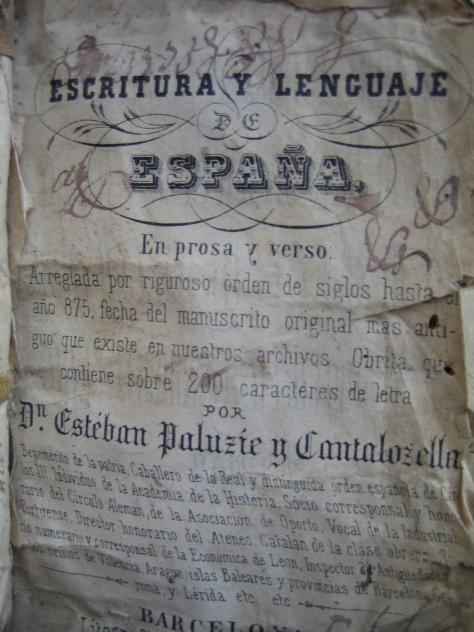 ESCRITURA Y LENGUAJE
DE
ESPAÑA,
En prosa y verso:
Arreglada por riguroso órden de siglos hasta el
año 875, fecha del manuscrito original mas anti-
guo que existe en nuestros archivos. Obrita que
contiene sobre 200 caractéres de letra
POR
Dn. Estéban Paluzíe y Cantalozella
Benemérito de la patria, Caballero de la Real y distinguida órden española de Cár
los III. Individuo de la Academia de la Historia, Sócio corresponsal y hono
rario del Círculo Aleman, de la Asociacion de Oporto, Vocal de la Industrial
Portuense, Director honorario del Ateneo Catalan de la clase obrera,
cio numerario y corresponsal de la Económica de Leon, Inspector de Antigüedades
los reinos de Valencia, Aragon, islas Baleares y provincias de Barcelona, Ge
rona, y Lérida etc etc
BARCELONA